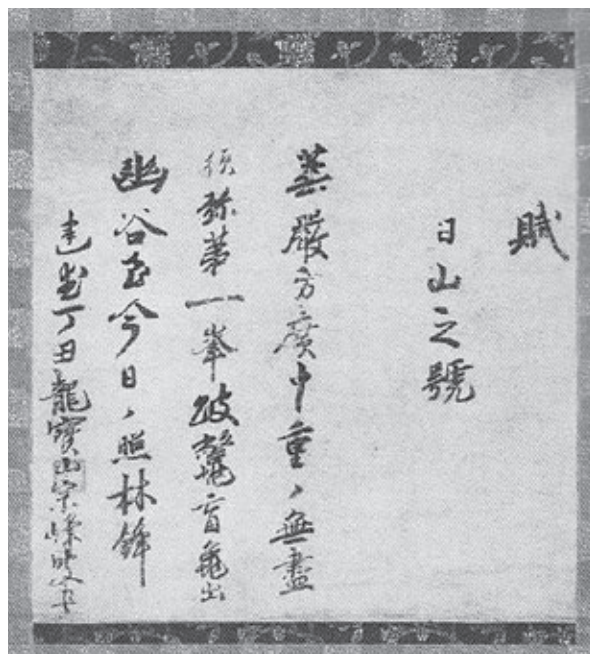 賦
日山之號
華嚴方廣中重〻無盡
須弥第一峯跛鼈盲龜出
幽谷至今日〻照林鋒
建武丁丑龍寶山宗峰叟